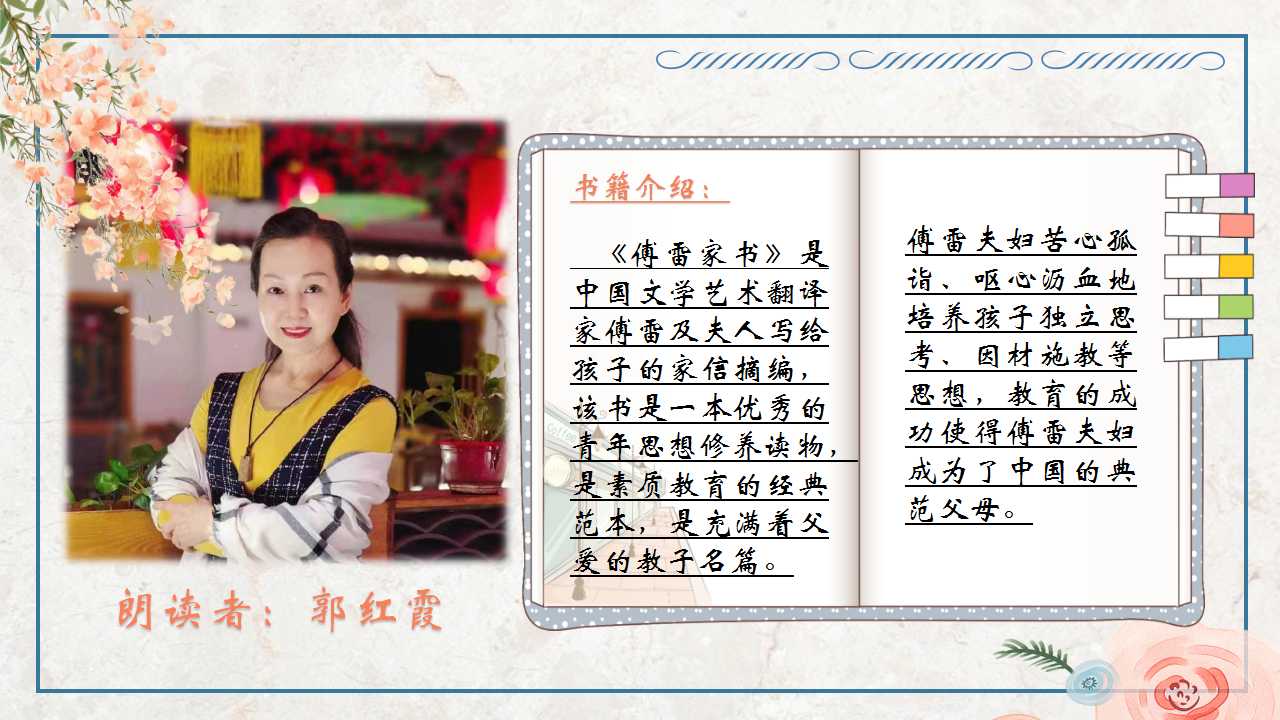 书籍介绍：
《傅雷家书》是
中国文学艺术翻译
家傅雷及夫人写给
孩子的家信摘编，
该书是一本优秀的
青年思想修养读物，
是素质教育的经典
范本，是充满着父
爱的教子名篇。
傅雷夫妇苦心孤
诣、呕心沥血地
培养孩子独立思
考、因材施教等
思想，教育的成
功使得傅雷夫妇
成为了中国的典
范父母。
朗读者：郭红霞